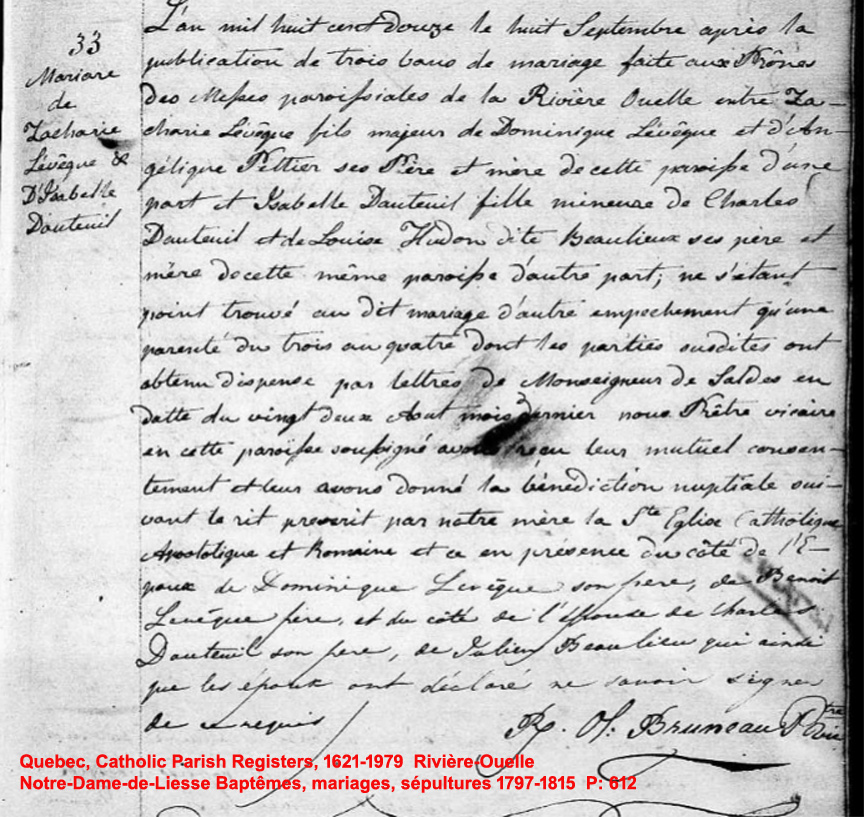 33
Mariare
de
Zacharie
Lévêque &
D'Isabelle
Dauteuil
L'an mil huit cent douze le huit Septembre après la
publication de trois bans de mariage faite aux Prônes
des Messes paroissiales de la Rivière Ouelle entre Za-
charie Lévêque fils majeur de Dominique Lévêque et d'An-
gélique Peltier ses Père et mère de cette paroisse d'une
part et Isabelle Dauteuil fille mineure de Charles
Dauteuil et de Louise Hudon dite Beaulieux ses père et
mère de cette même paroisse d'autre part; ne s'étant
point trouvé au dit mariage d'autre empechement qu'une
parenté du trois au quatre dont les parties susdites ont
obtenu dispense par lettres de Monseigneur de Saldes en
datte du vingt deux Aout mois dernier nous Prêtre vicaire
en cette paroisse soussigné avons reçu leur mutuel consen-
tement et leur avons donné la bénédiction nuptiale sui-
vant le rit prescrit par notre mère la Ste Eglise Catholique
Apostolique et Romaine et ce en présence du côté de l'E-
poux de Dominique Levêque son père, de Benoit
Levêque père, et du côté de l'épouse de Charles
Dauteuil son père, de Julien Beaulieu qui ainsi
que les époux ont déclaré ne savoir signer
de ce requis
R. O: Bruneau Ptre Vic
Quebec, Catholic Parish Registers, 1621-1979 Rivière-Ouelle
Notre-Dame-de-Liesse Baptêmes, mariages, sépultures 1797-1815 P: 612